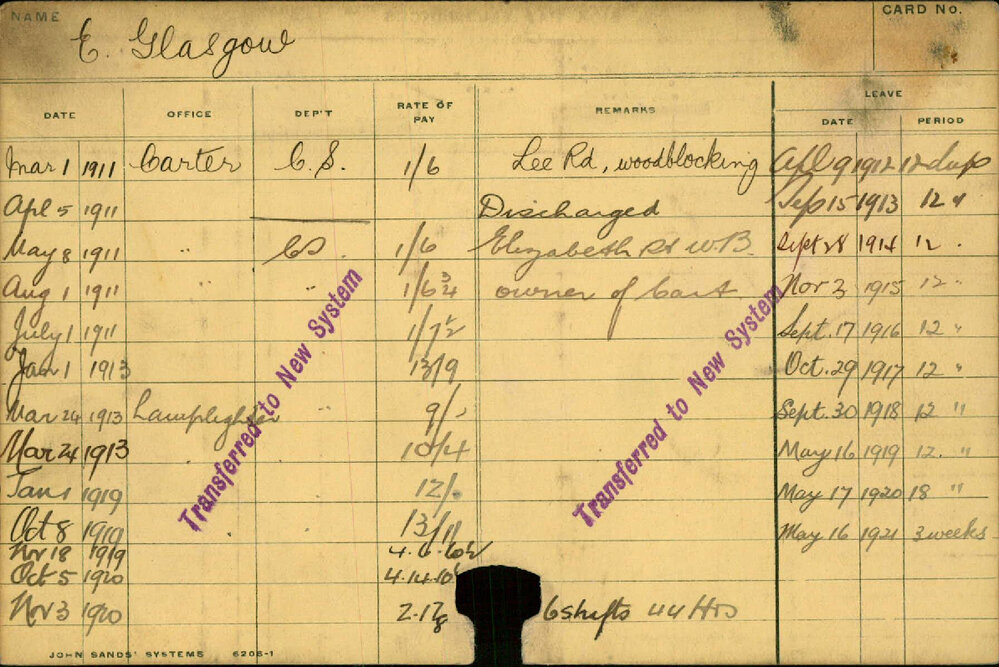 NAME E. Glasgow CARD No.
LEAVE
DATE OFFICE DEP'T RATE OF PAY REMARKS DATE PERIOD
Mar 1 1911 Carter C.S. 1/6 Lee Rd, woodblocking Apl 9 1912 12 days
Apl 5 1911 Discharged Sep 15 1913 12 "
May 8 1911 " CS. 1/6 Elizabeth St W.B. Sept 28 1914 12 "
Aug 1 1911 " " 1/6 3/4 owner of Cart Nov 3 1915 12 "
July 1 1911 " " 1/7 1/2 Sept. 17 1916 12 "
Jan 1 1913 13/9 Oct. 29 1917 12 "
Mar 24 1913 Lamplighter " 9/- Sept. 30 1918 12 "
Mar 24 1913 10/4 May 16 1919 12 "
Jan 1 1919 12/- May 17 1920 18 "
Oct 8 1919 13/11 May 16 1921 3 weeks
Nov 18 1919
Oct 5 1920
Nov 3 1920 6 shifts 44 Hrs
Transferred to New System
Transferred to New System
JOHN SANDS' SYSTEMS 6206-1